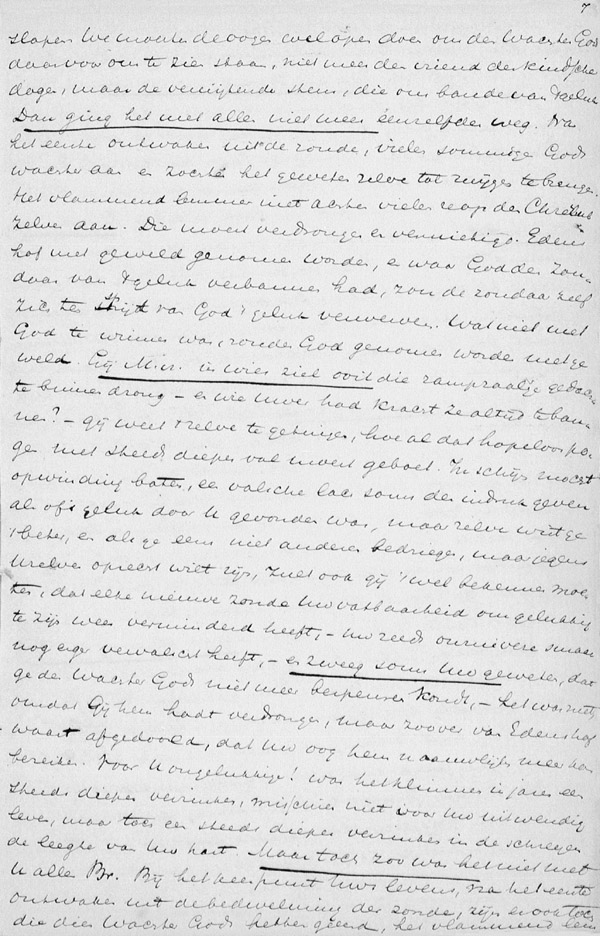 7
slapen We moesten de oogen wel open doen om den Wachter Gods
daar voor ons te zien staan, niet meer den vriend der kindsche
dagen, maar de vernietigende stem, die ons bande van 't geluk
Dan ging het met allen niet meer eenzelfden weg. Na
het eerste ontwaken uit de zonde, vielen sommige Gods
wachter aan en zochten het geweten zelve tot zwijgen te brengen.
Het vlammend lemmer niet achten vielen ze op den Cherub
zelven aan. Die moest verdrongen en vernietigd. Edens
hof met geweld genomen worden, en waar God den zon-
daar van 't geluk verbannen had, zou de zondaar zelf
zich ten strijd van God 't geluk verwerven. Wat niet met
God te winnen was, zonder God genomen worden met ge
weld. Gij M.vr. in wier ziel ooit die rampzalige gedachte
te binnen drong – en wie uwer had kracht ze altijd te ban-
nen? – gij weet 't zelve te getuigen, hoe al dat hopeloos po-
gen met steeds dieper val moest geboet. In schijn mocht
opwinding baten, een valsche lach soms den indruk geven
als of 't geluk door U gevonden was, maar zelve wist ge
't beter, en als ge eens niet anderen bedriegen, maar jegens
Uzelve oprecht wilt zijn, zult ook gij 't wel bekennen moe-
ten, dat elke nieuwe zonde Uw vatbaarheid om gelukkig
te zijn weer verminderd heeft, – uw reeds onzuivere smaak
nog erger vervalscht heeft, – en zweeg soms Uw geweten, dat
ge den Wachter Gods niet meer bespeuren kondt, – het was niet
omdat Gij hem hadt verdrongen, maar zoo ver van Edens hof
waart afgedoold, dat Uw oog hem nauwlijks meer kon
bereiken. Voor U ongelukkige! was het klimmen in jaren een
steeds dieper verzinken, misschien niet voor Uw uitwendig
leven, maar toch een steeds dieper verzinken in de schreien
de leegte van Uw hart. Maar toch zoo was het niet met
U allen Br. Bij het keerpunt Uws levens, na het eerste
ontwaken uit de bedwelming der zonde, zijn er ook toch
die dien Wachter Gods hebben geëerd, het vlammend lem